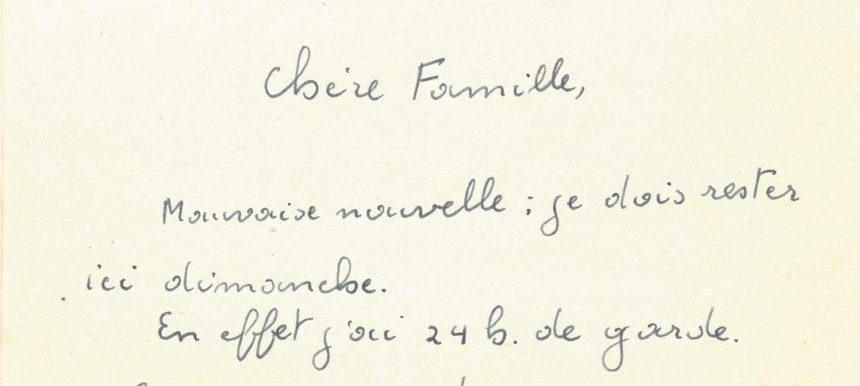 Chère Famille,
Mauvaise nouvelle ; je dois rester
ici dimanche.
En effet j'ai 24 h. de garde.